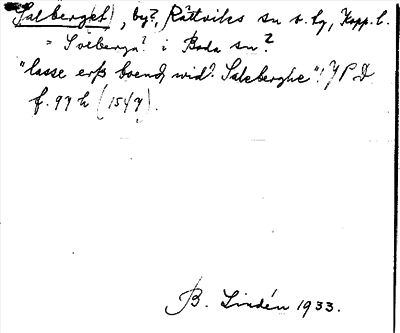 Salberg(et), by?, Rättviks sn o. tg, Kopp. l.
= Solberga? i Boda sn?
"lasse erss boend wid? Saleberghe"! JPD
f. 97 h (1547).
B. Lindén 1933.